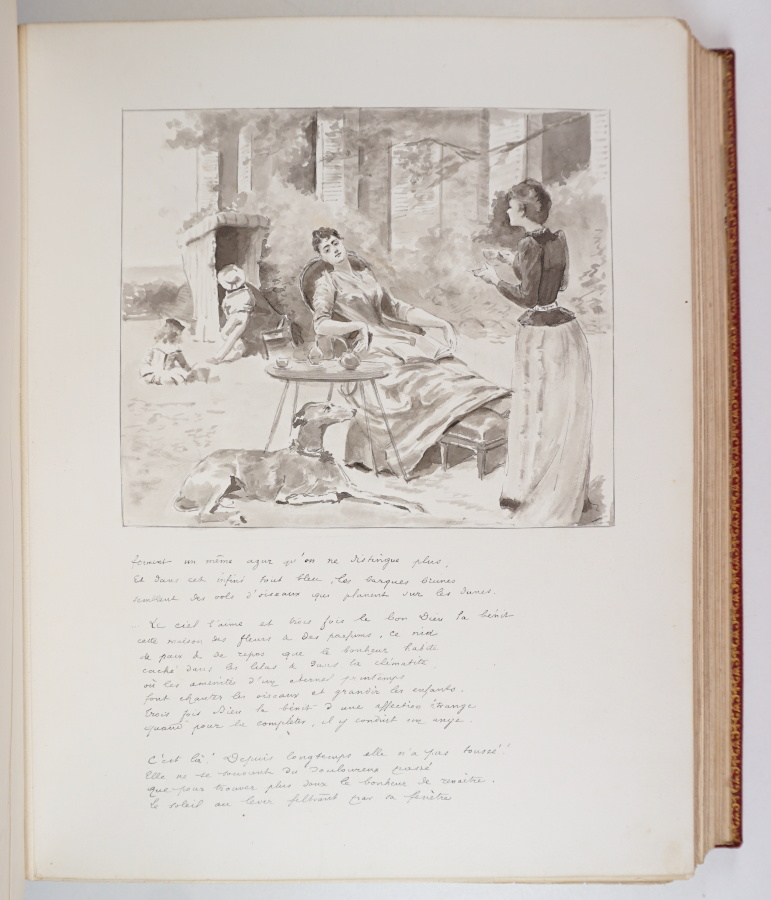 forment un même azur qu'on ne distingue plus,
Et dans cet infini tout bleu, les barques brunes
semblent des vols d'oiseaux qui planent sur les dunes.
... Le ciel l'aime et trois fois le bon Dieu la bénit
cette maison des fleurs & des parfums, ce nid
de paix & de repos que le bonheur habite
caché dans les lilas & dans la clématite,
où les aménités d'un éternel printemps
font chanter les oiseaux et grandir les enfants.
Trois fois Dieu la bénit d'une affection étrange
quand pour la compléter, il y conduit un ange.
C'est là! Depuis longtemps elle n'a pas toussé!
Elle ne se souvient du douloureux passé
que pour trouver plus doux le bonheur de renaître.
le soleil au lever filtrant par sa fenêtre